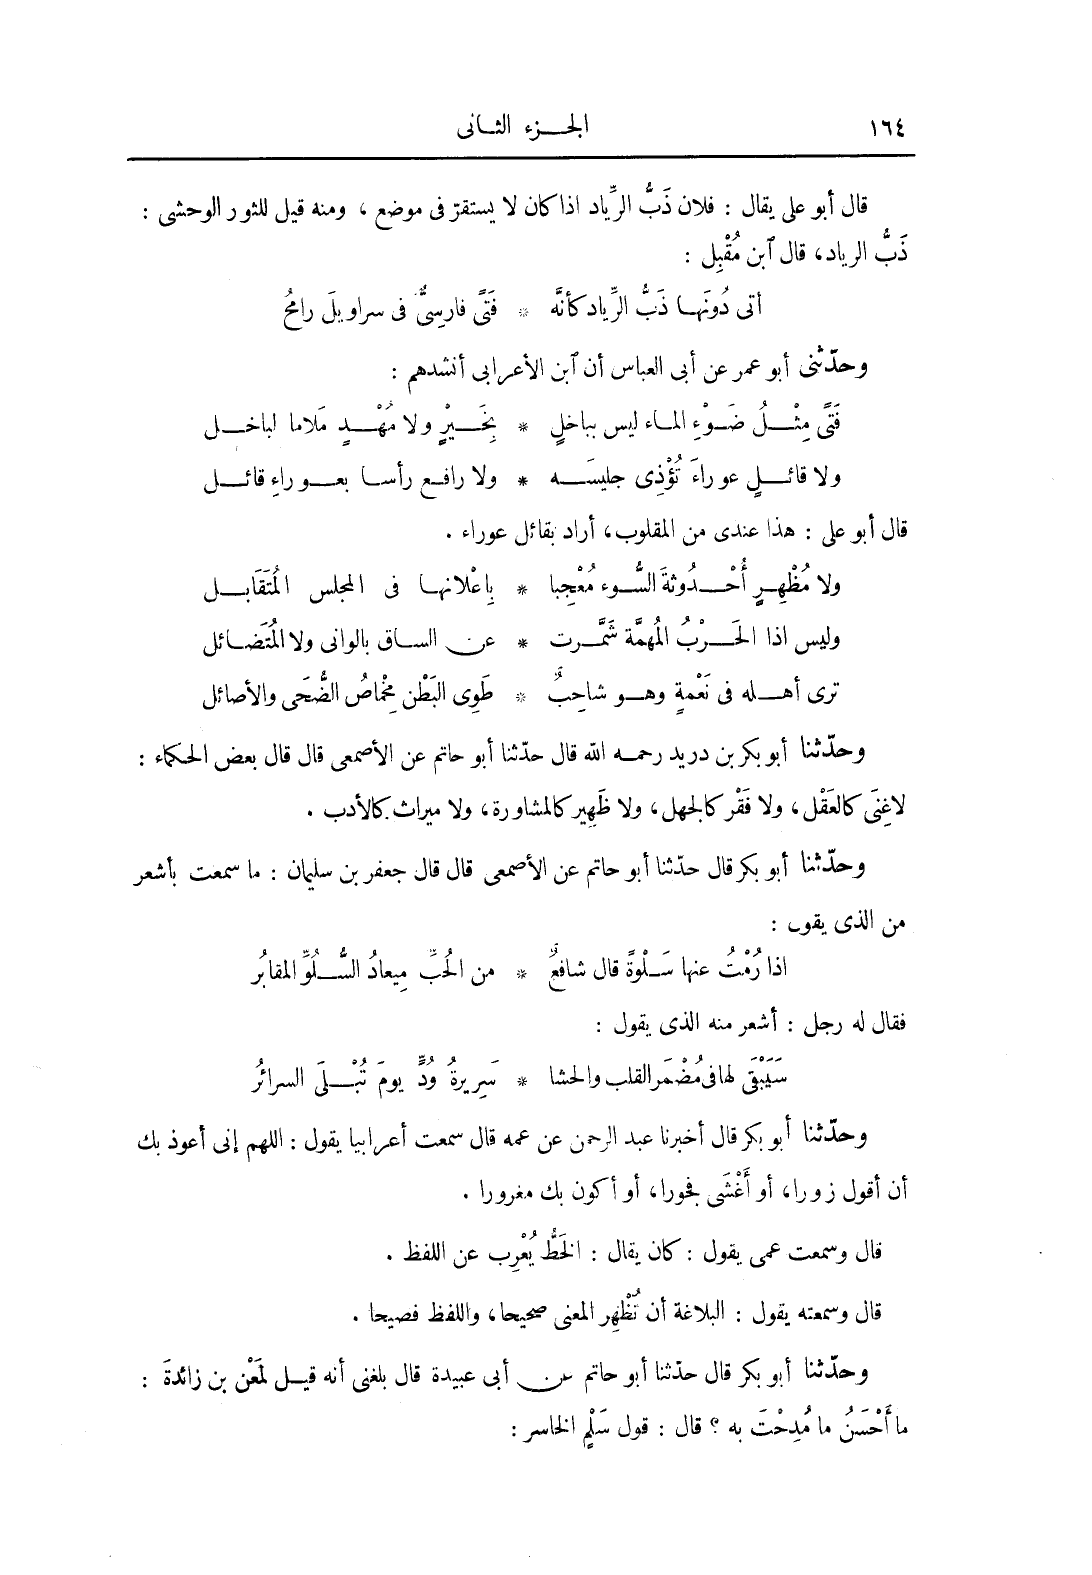 ١٦٤ الجــزء الثــانى
قال أبو على يقال : فلان ذَبُّ الرِّياد اذا كان لا يستقرّ فى موضع ، ومنه قيل للثور الوحشى :
ذَبُّ الرياد، قال ٱبن مُقْبِل :
أتى دُونَهـا ذَبُّ الرِّياد كأنَّه * فَتًى فارِسِىٌّ فى سراويلَ رامحُ
وحدّثنى أبو عمر عن أبى العباس أن ٱبن الأعرابى أنشدهم :
فَتًى مِثْـلُ ضَـوْءِ المـاء ليس بباخلٍ * بِخَـيْرٍ ولا مُهْـدٍ مَلاما لباخـل
ولا قائـلٍ عوراءَ تُؤْذِى جليسَـه * ولا رافـع رأسـا بعـوراءِ قائـل
قال أبو على : هذا عندى من المقلوب، أراد بقائل عوراء .
ولا مُظْهِـرٍ أُحْـدُوثةَ السُّـوء مُعْجِبا * بِإعْلانهـا فى المجلس المُتَقَابـل
وليس اذا الحَـرْبُ المُهمَّة شَمَّـرت * عن السـاق بالوانى ولا المُتَضـائل
ترى أهـله فى نَعْمةٍ وهـو شاحِبٌ * طَوِى البَطْن مِخْماصُ الضُّحَى والأصائل
وحدّثنا أبو بكر بن دريد رحمـه الله قال حدّثنا أبو حاتم عن الأصمعى قال قال بعض الحكماء :
لا غِنَى كالعَقْل، ولا فَقْر كالجهل، ولا ظَهِير كالمشاورة، ولا ميراث كالأدب .
وحدّثنا أبو بكر قال حدّثنا أبو حاتم عن الأصمعى قال قال جعفر بن سليمان : ما سمعت بأشعر
من الذى يقول :
اذا رُمْتُ عنها سَـلْوةً قال شافعٌ * من الحُبِّ مِيعادُ السُّـلُوِّ المقابُر
فقال له رجل : أشعر منه الذى يقول :
سَيَبْقَى لها فى مُضْمَر القلب والحشا * سَرِيرةُ وُدٍّ يومَ تُبْـلَى السرائرُ
وحدّثنا أبو بكر قال أخبرنا عبد الرحمن عن عمه قال سمعت أعرابيا يقول : اللهم إنى أعوذ بك
أن أقول زورا، أو أَغْشَى فجورا، أو أكون بك مغرورا .
قال وسمعت عمى يقول : كان يقال : الخَطُّ يُعْرِب عن اللفظ .
قال وسمعته يقول : البلاغة أن تُظْهِر المعنى صحيحا، واللفظ فصيحا .
وحدّثنا أبو بكر قال حدّثنا أبو حاتم عن أبى عبيدة قال بلغنى أنه قيـل لمَعْن بن زائدةَ :
ما أَحْسَنُ ما مُدِحْتَ به ؟ قال : قول سَلْمٍ الخاسر :